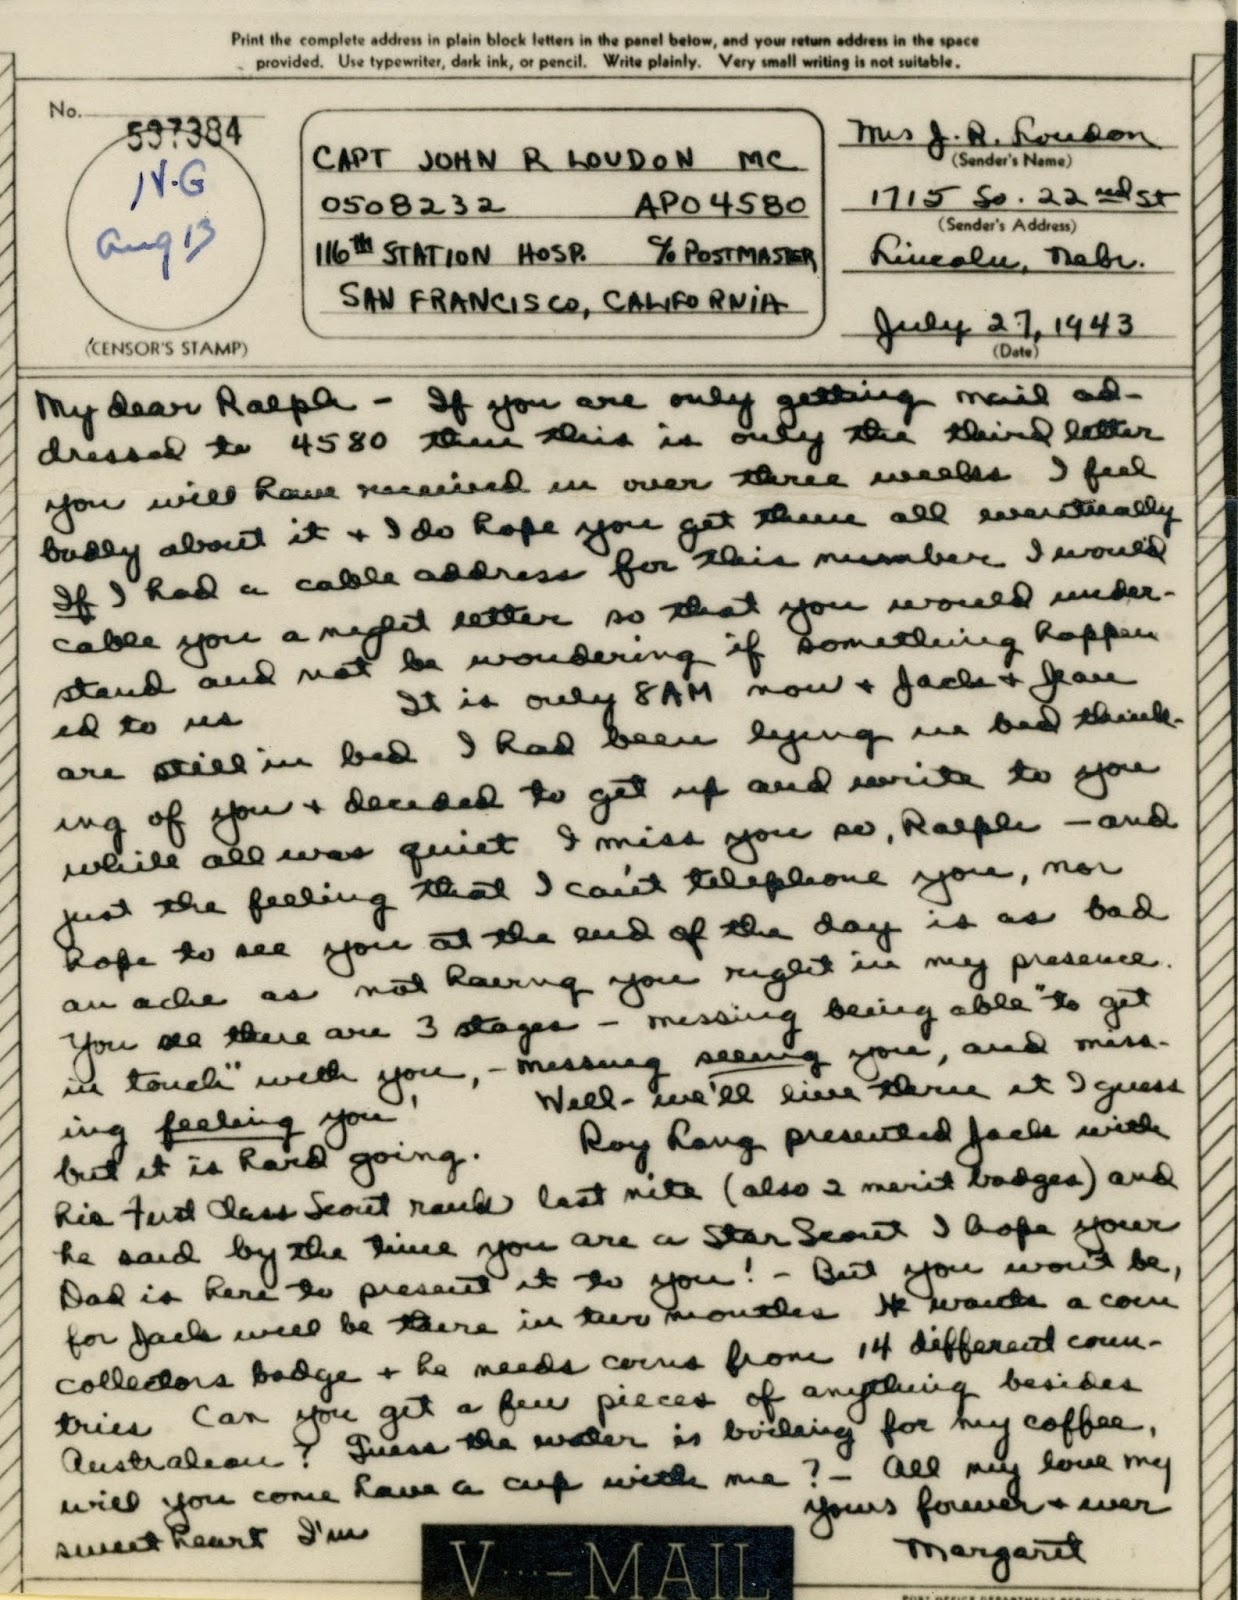 Print the complete address in plain block letters in the panel below, and your return address in the space
provided. Use typewriter, dark ink, or pencil. Write plainly. Very small writing is not suitable.
No.
597384
N.G
Aug 13
(CENSOR'S STAMP)
CAPT JOHN R LOUDON MC
0508232 APO 4580
116th STATION HOSP. c/o POSTMASTER
SAN FRANCISCO, CALIFORNIA
Mrs J. R. Loudon
(Sender's Name)
1715 So. 22nd St
(Sender's Address)
Lincoln, Nebr.
July 27, 1943
(Date)
My dear Ralph - If you are only getting mail ad-
dressed to 4580 then this is only the third letter
you will have received in over three weeks I feel
badly about it + I do hope you get them all eventually
If I had a cable address for this number I would
cable you a night letter so that you would under-
stand and not be wondering if something happen
ed to us It is only 8 AM now + Jack + Jean
are still in bed I had been lying in bed think-
ing of you + decided to get up and write to you
while all was quiet I miss you so, Ralph - and
just the feeling that I can't telephone you, nor
hope to see you at the end of the day is as bad
an ache as not having you right in my presence.
You see there are 3 stages - missing being able "to get
in touch" with you, - missing seeing you, and miss-
ing feeling you! Well - we'll live thru it I guess
but it is hard going. Roy Lang presented Jack with
his First Class Scout rank last nite (also 2 merit badges) and
he said by the time you are a Star Scout I hope your
Dad is here to present it to you! - But you won't be,
for Jack will be there in two months He wants a coin
collectors badge + he needs coins from 14 different coun-
tries Can you get a few pieces of anything besides
Australian? Guess the water is boiling for my coffee,
will you come have a cup with me? - All my love my
sweetheart I'm yours forever + ever
Margaret
V···-MAIL